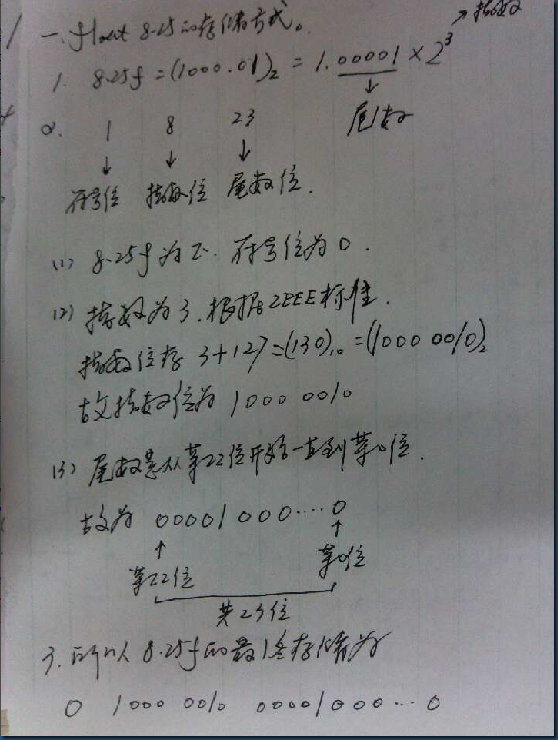 一. float 8.25的存储方式。
→ 指数
1. 8.25f = (1000.01)₂ = 1.00001 × 2³
↓
尾数
2. 1 8 23
↓ ↓ ↓
符号位 指数位 尾数位.
(1) 8.25f为正. 符号位为0.
(2) 指数为3. 根据IEEE标准.
指数位存 3+127=(130)₁₀=(1000 0010)₂
故指数位为 1000 0010
(3) 尾数是从第22位开始一直到第0位.
故为 00001000····0
↑ ↑
第22位 第0位
共23位
3. 所以 8.25f的最终存储为
0 1000 0010 00001000···0